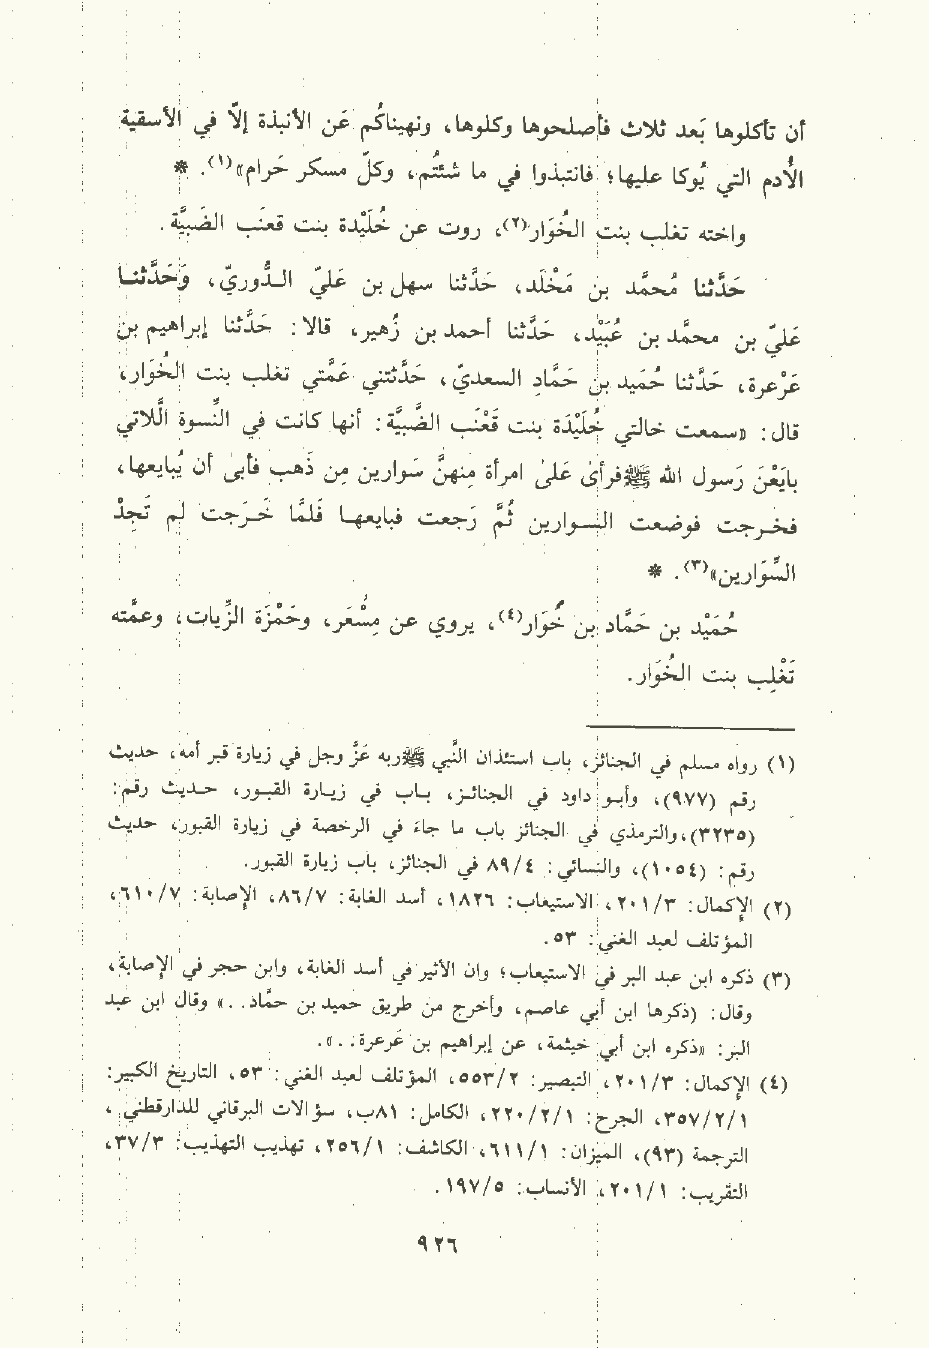 أن تأكلوها بَعد ثلاث فأصلحوها وكلوها، ونهيناكُم عَن الأنبذة إلّا في الأسقية
الأُدم التي يُوكا عليها؛ فانتبذوا في ما شئتُم، وكلّ مسكر حَرام»(١). *
واخته تغلب بنت الخُوَار(٢)، روت عن خُلَيْدة بنت قعنَب الضَبيَّة.
حَدَّثنا مُحمَّد بن مَخْلَد، حَدَّثنا سهل بن عَليّ الدُّوريّ، وَحَدَّثنا
عَليّ بن محمَّد بن عُبَيْد، حَدَّثنا أحمد بن زُهير، قالا: حَدَّثنا إبراهيم بن
عَرْعرة، حَدَّثنا حُمَيد بن حَمَّادٍ السعديّ، حَدَّثتني عَمَّتي تغلب بنت الخُوَار،
قال: «سمعت خالتي خُلَيْدَة بنت قَعْنَب الضَّبيَّة: أنها كانت في النِّسوة الَّلاتي
بايَعْنَ رَسول الله ﷺ فرأىٰ عَلىٰ امرأة منهنَّ سَوارين مِن ذَهب فأبىٰ أن يُبايعها،
فخرجت فوضعت السوارين ثُمَّ رَجعت فبايعها فَلمَّا خَرَجت لم تَجِدْ
السِّوَارين»(٣). *
حُمَيْد بن حَمَّاد بن خُوَار(٤)، يروي عن مِسْعَر، وحَمْزَة الزِّيات، وعمَّته
تَغْلِب بنت الخُوَار.
(١) رواه مسلم في الجنائز، باب استئذان النَّبي ﷺ ربه عَزَّ وجل في زيارة قبر أمه، حديث
رقم (٩٧٧)، وأبو داود في الجنائز، باب في زيارة القبور، حديث رقم:
(٣٢٣٥)، والترمذي في الجنائز باب ما جاءَ في الرخصة في زيارة القبور، حديث
رقم: (١٠٥٤)، والنسائي: ٨٩/٤ في الجنائز، باب زيارة القبور.
(٢) الإكمال: ٢٠١/٣، الاستيعاب: ١٨٢٦، أسد الغابة: ٨٦/٧، الإصابة: ٦١٠/٧،
المؤتلف لعبد الغني: ٥٣.
(٣) ذكره ابن عبد البر في الاستيعاب؛ وان الأثير في أسد الغابة، وابن حجر في الإصابة،
وقال: (ذكرها ابن أبي عاصم، وأخرج من طريق حميد بن حمَّاد..» وقال ابن عبد
البر: «ذكره ابن أبي خيثمة، عن إبراهيم بن عَرعرة..».
(٤) الإكمال: ٢٠١/٣، التبصير: ٥٥٣/٢، المؤتلف لعبد الغني: ٥٣، التاريخ الكبير:
٣٥٧/٢/١، الجرح: ٢٢٠/٢/١، الكامل: ٨١ب، سؤالات البرقاني للدارقطني،
الترجمة (٩٣)، الميزان: ٦١١/١، الكاشف: ٢٥٦/١، تهذيب التهذيب: ٣٧/٣،
التقريب: ٢٠١/١، الأنساب: ١٩٧/٥.
٩٢٦